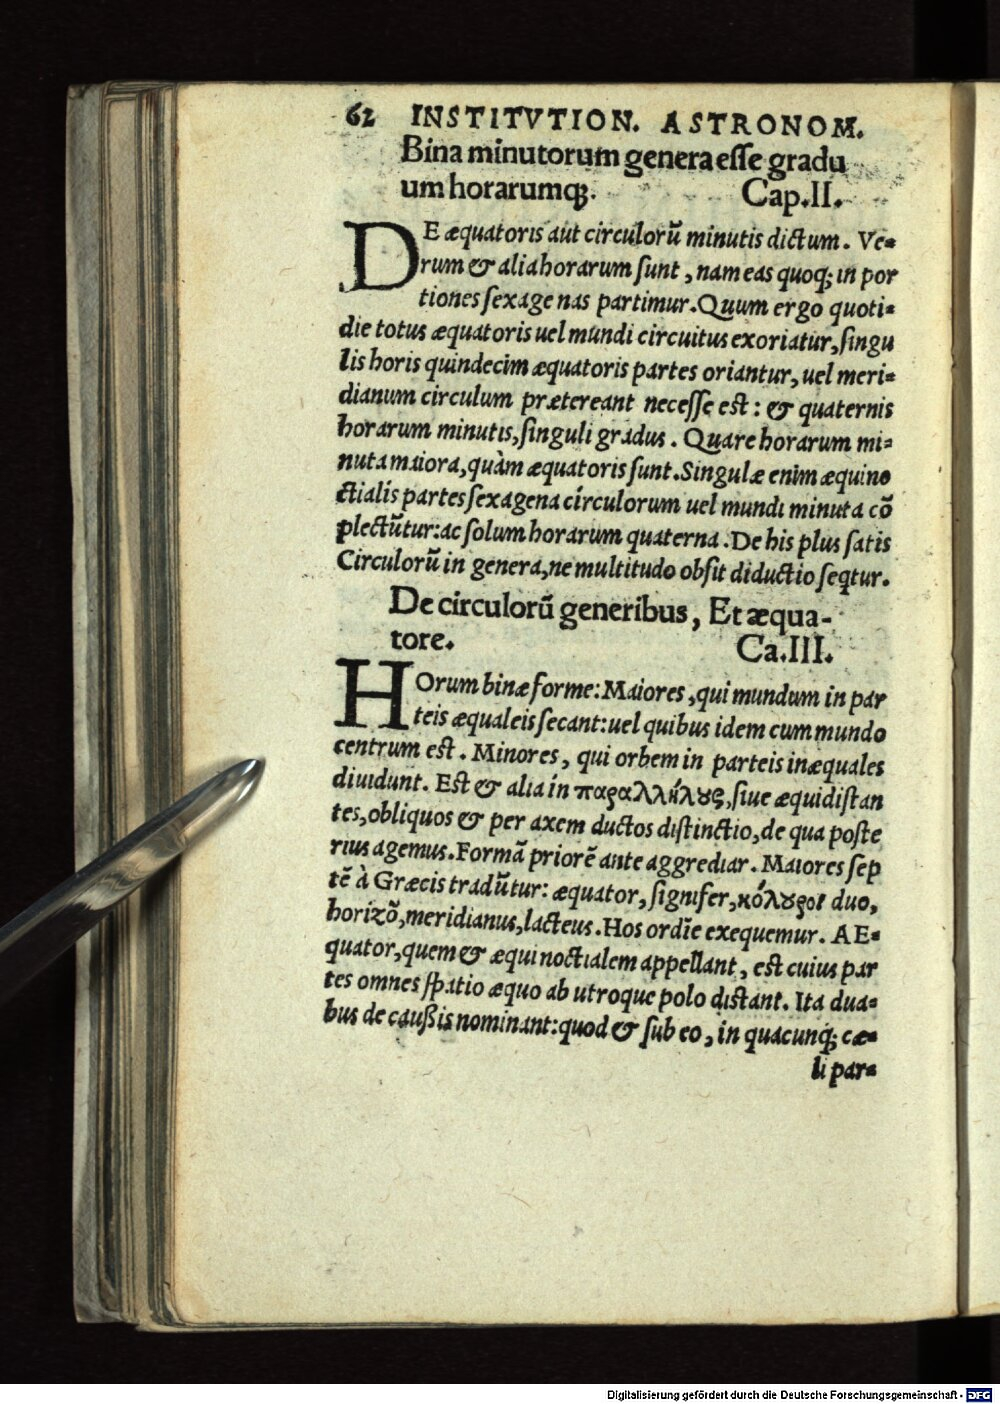 62 INSTITVTION. ASTRONOM.
Bina minutorum genera esse gradu
um horarumq;. Cap.II.
DE æquatoris aut circulorũ minutis dictum. Ve-
rum & alia horarum sunt, nam eas quoq; in por
tiones sexagenas partimur. Quum ergo quoti-
die totus æquatoris uel mundi circuitus exoriatur, singu
lis horis quindecim æquatoris partes oriantur, uel meri-
dianum circulum prætereant necesse est: & quaternis
horarum minutis, singuli gradus. Quare horarum mi-
nuta maiora, quàm æquatoris sunt. Singulæ enim æquino
ctialis partes sexagena circulorum uel mundi minuta cõ
plectũtur: ac solum horarum quaterna. De his plus satis
Circulorũ in genera, ne multitudo obsit diductio seqtur.
De circulorũ generibus, Et æqua-
tore. Ca.III.
HOrum binæ forme: Maiores, qui mundum in par
teis æqualeis secant: uel quibus idem cum mundo
centrum est. Minores, qui orbem in parteis inæquales
diuidunt. Est & alia in παραλλήλους, siue æquidistan
tes, obliquos & per axem ductos distinctio, de qua poste
rius agemus. Formã priorẽ ante aggrediar. Maiores sep
tẽ à Græcis tradũtur: æquator, signifer, κόλουροι duo,
horizõ, meridianus, lacteus. Hos ordĩe exequemur. AE-
quator, quem & æquinoctialem appellant, est cuius par
tes omnes spatio æquo ab utroque polo distant. Ita dua-
bus de caußis nominant: quod & sub eo, in quacunq; cæ-
li par-
Digitalisierung gefördert durch die Deutsche Forschungsgemeinschaft - DFG